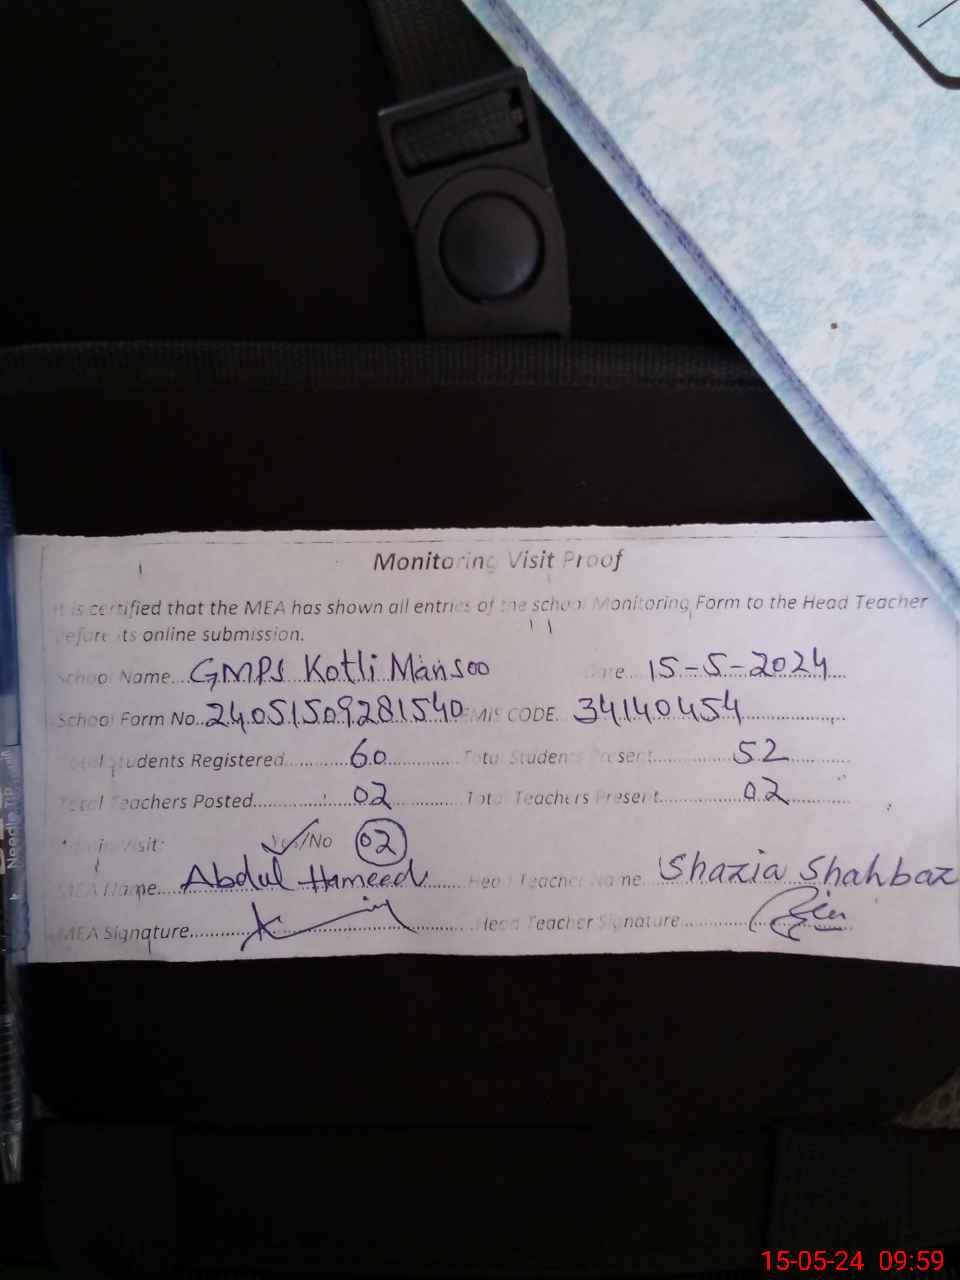 Monitoring Visit Proof
It is certified that the MEA has shown all entries of the school Monitoring Form to the Head Teacher
before its online submission.
School Name...GMPS Kotli Mansoo Date...15-5-2024
School Form No..24051509281540 EMIS CODE. 34140454
Total Students Registered...60 Total Students Present...52
Total Teachers Posted...02 Total Teachers Present...02
Visit: Yes/No 02
MEA Name...Abdul Hameed Head Teacher Name Shazia Shahbaz
MEA Signature... Head Teacher Signature...
Needle TIP
15-05-24 09:59